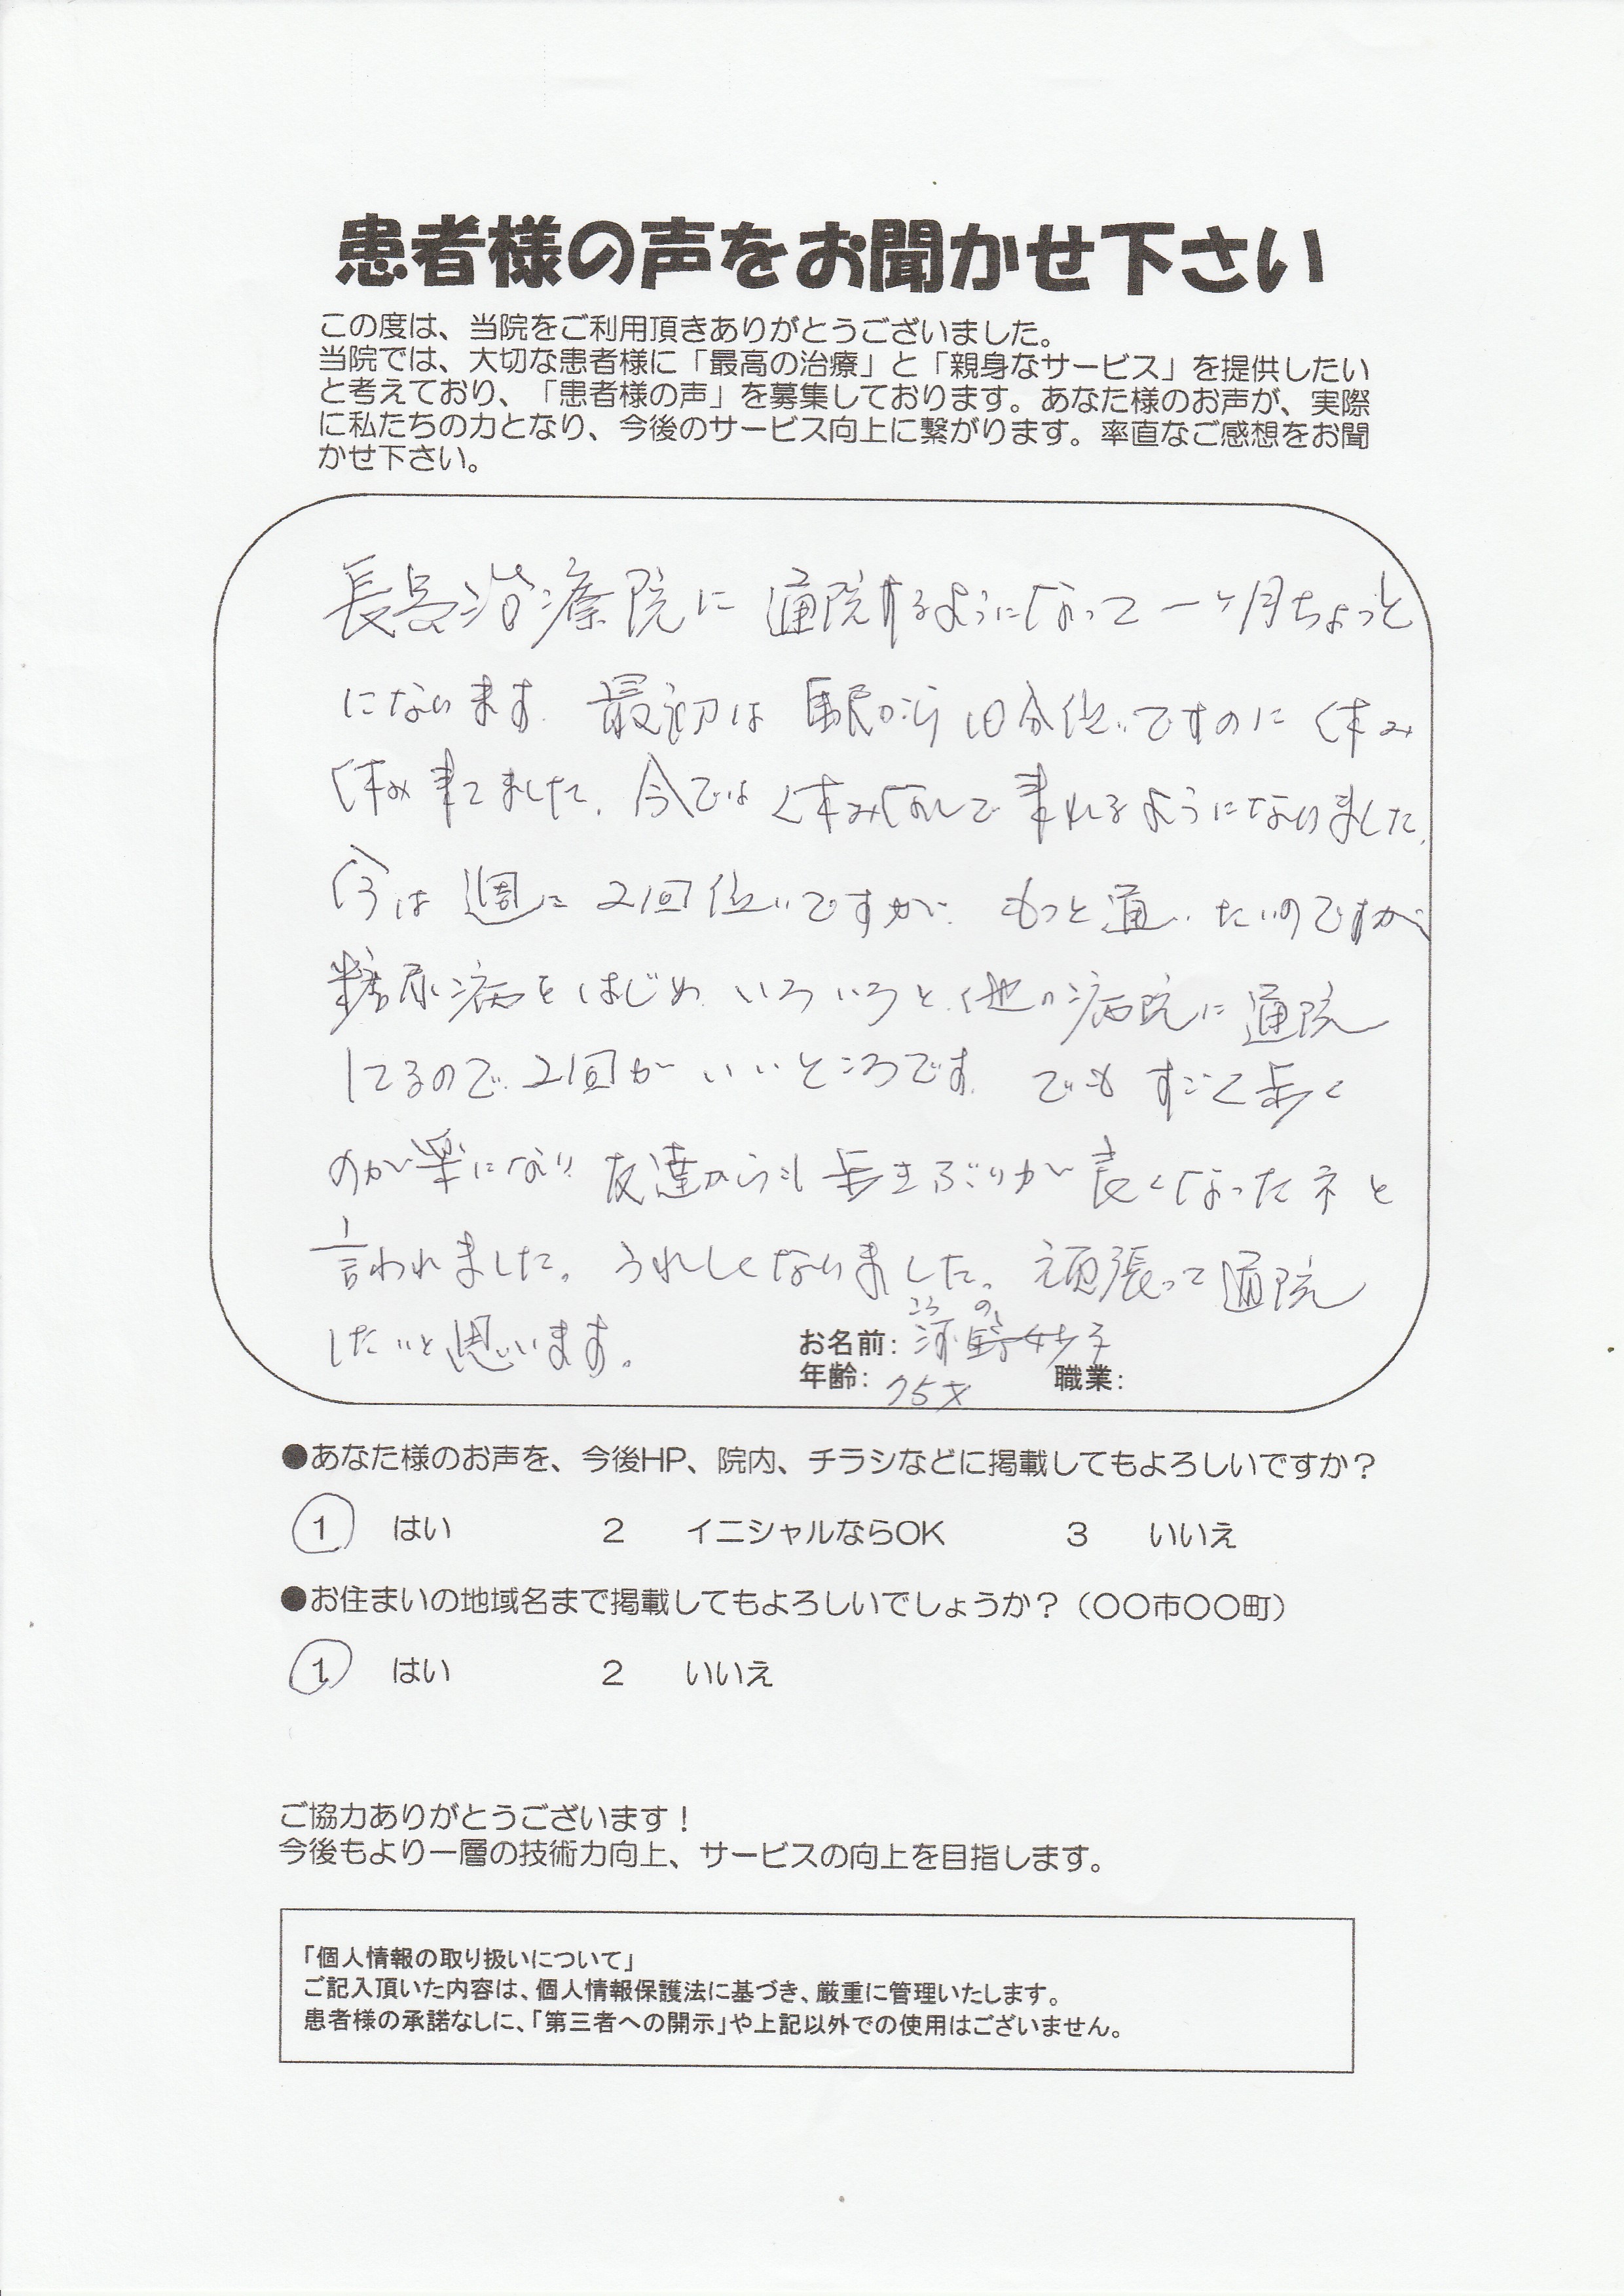 患者様の声をお聞かせ下さい
この度は、当院をご利用頂きありがとうございました。
当院では、大切な患者様に「最高の治療」と「親身なサービス」を提供したい
と考えており、「患者様の声」を募集しております。あなた様のお声が、実際
に私たちの力となり、今後のサービス向上に繋がります。率直なご感想をお聞
かせ下さい。
治療院に通院するようになって一ヶ月ちょっと
になります。最初は駅から10分位いですのに休み
休み来てました。今では休みなしで来れるようになりました。
今は週に2回位いですが、もっと通いたいのですが
糖尿病をはじめ、いろいろと他の病院に通院
してるので、2回がいいところです。でもすごく歩く
のが楽になり友達からも歩きぶりが良くなったネと
言われました。うれしくなりました。頑張って通院
したいと思います。
こうの
お名前: 河野妙子
年齢: 75才 職業:
●あなた様のお声を、今後HP、院内、チラシなどに掲載してもよろしいですか？
1 はい 2 イニシャルならOK 3 いいえ
●お住まいの地域名まで掲載してもよろしいでしょうか？（〇〇市〇〇町）
1 はい 2 いいえ
ご協力ありがとうございます！
今後もより一層の技術力向上、サービスの向上を目指します。
「個人情報の取り扱いについて」
ご記入頂いた内容は、個人情報保護法に基づき、厳重に管理いたします。
患者様の承諾なしに、「第三者への開示」や上記以外での使用はございません。